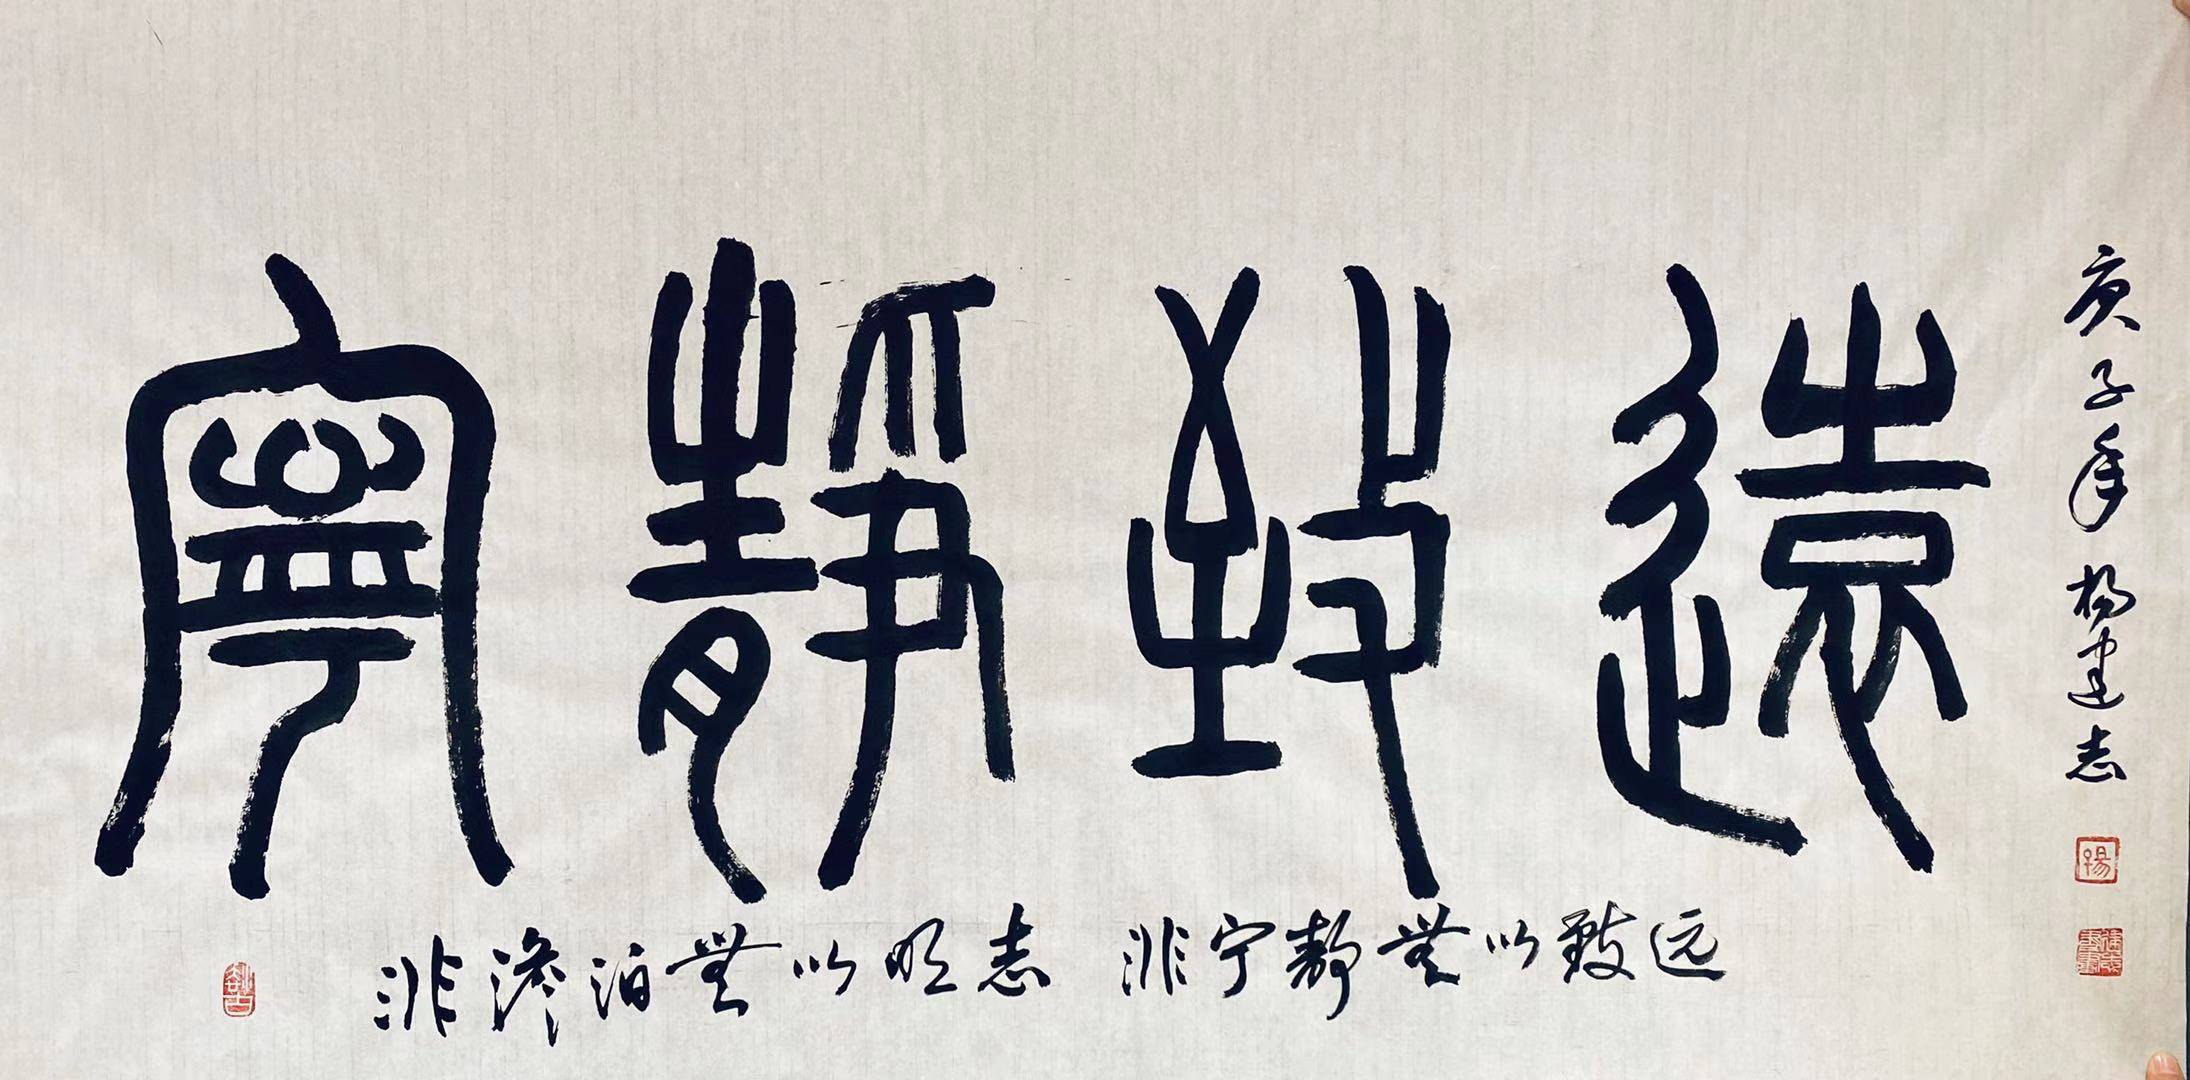 寧靜致遠
非澹泊無以明志 非宁靜無以致远
庚子年 楊建志
楊